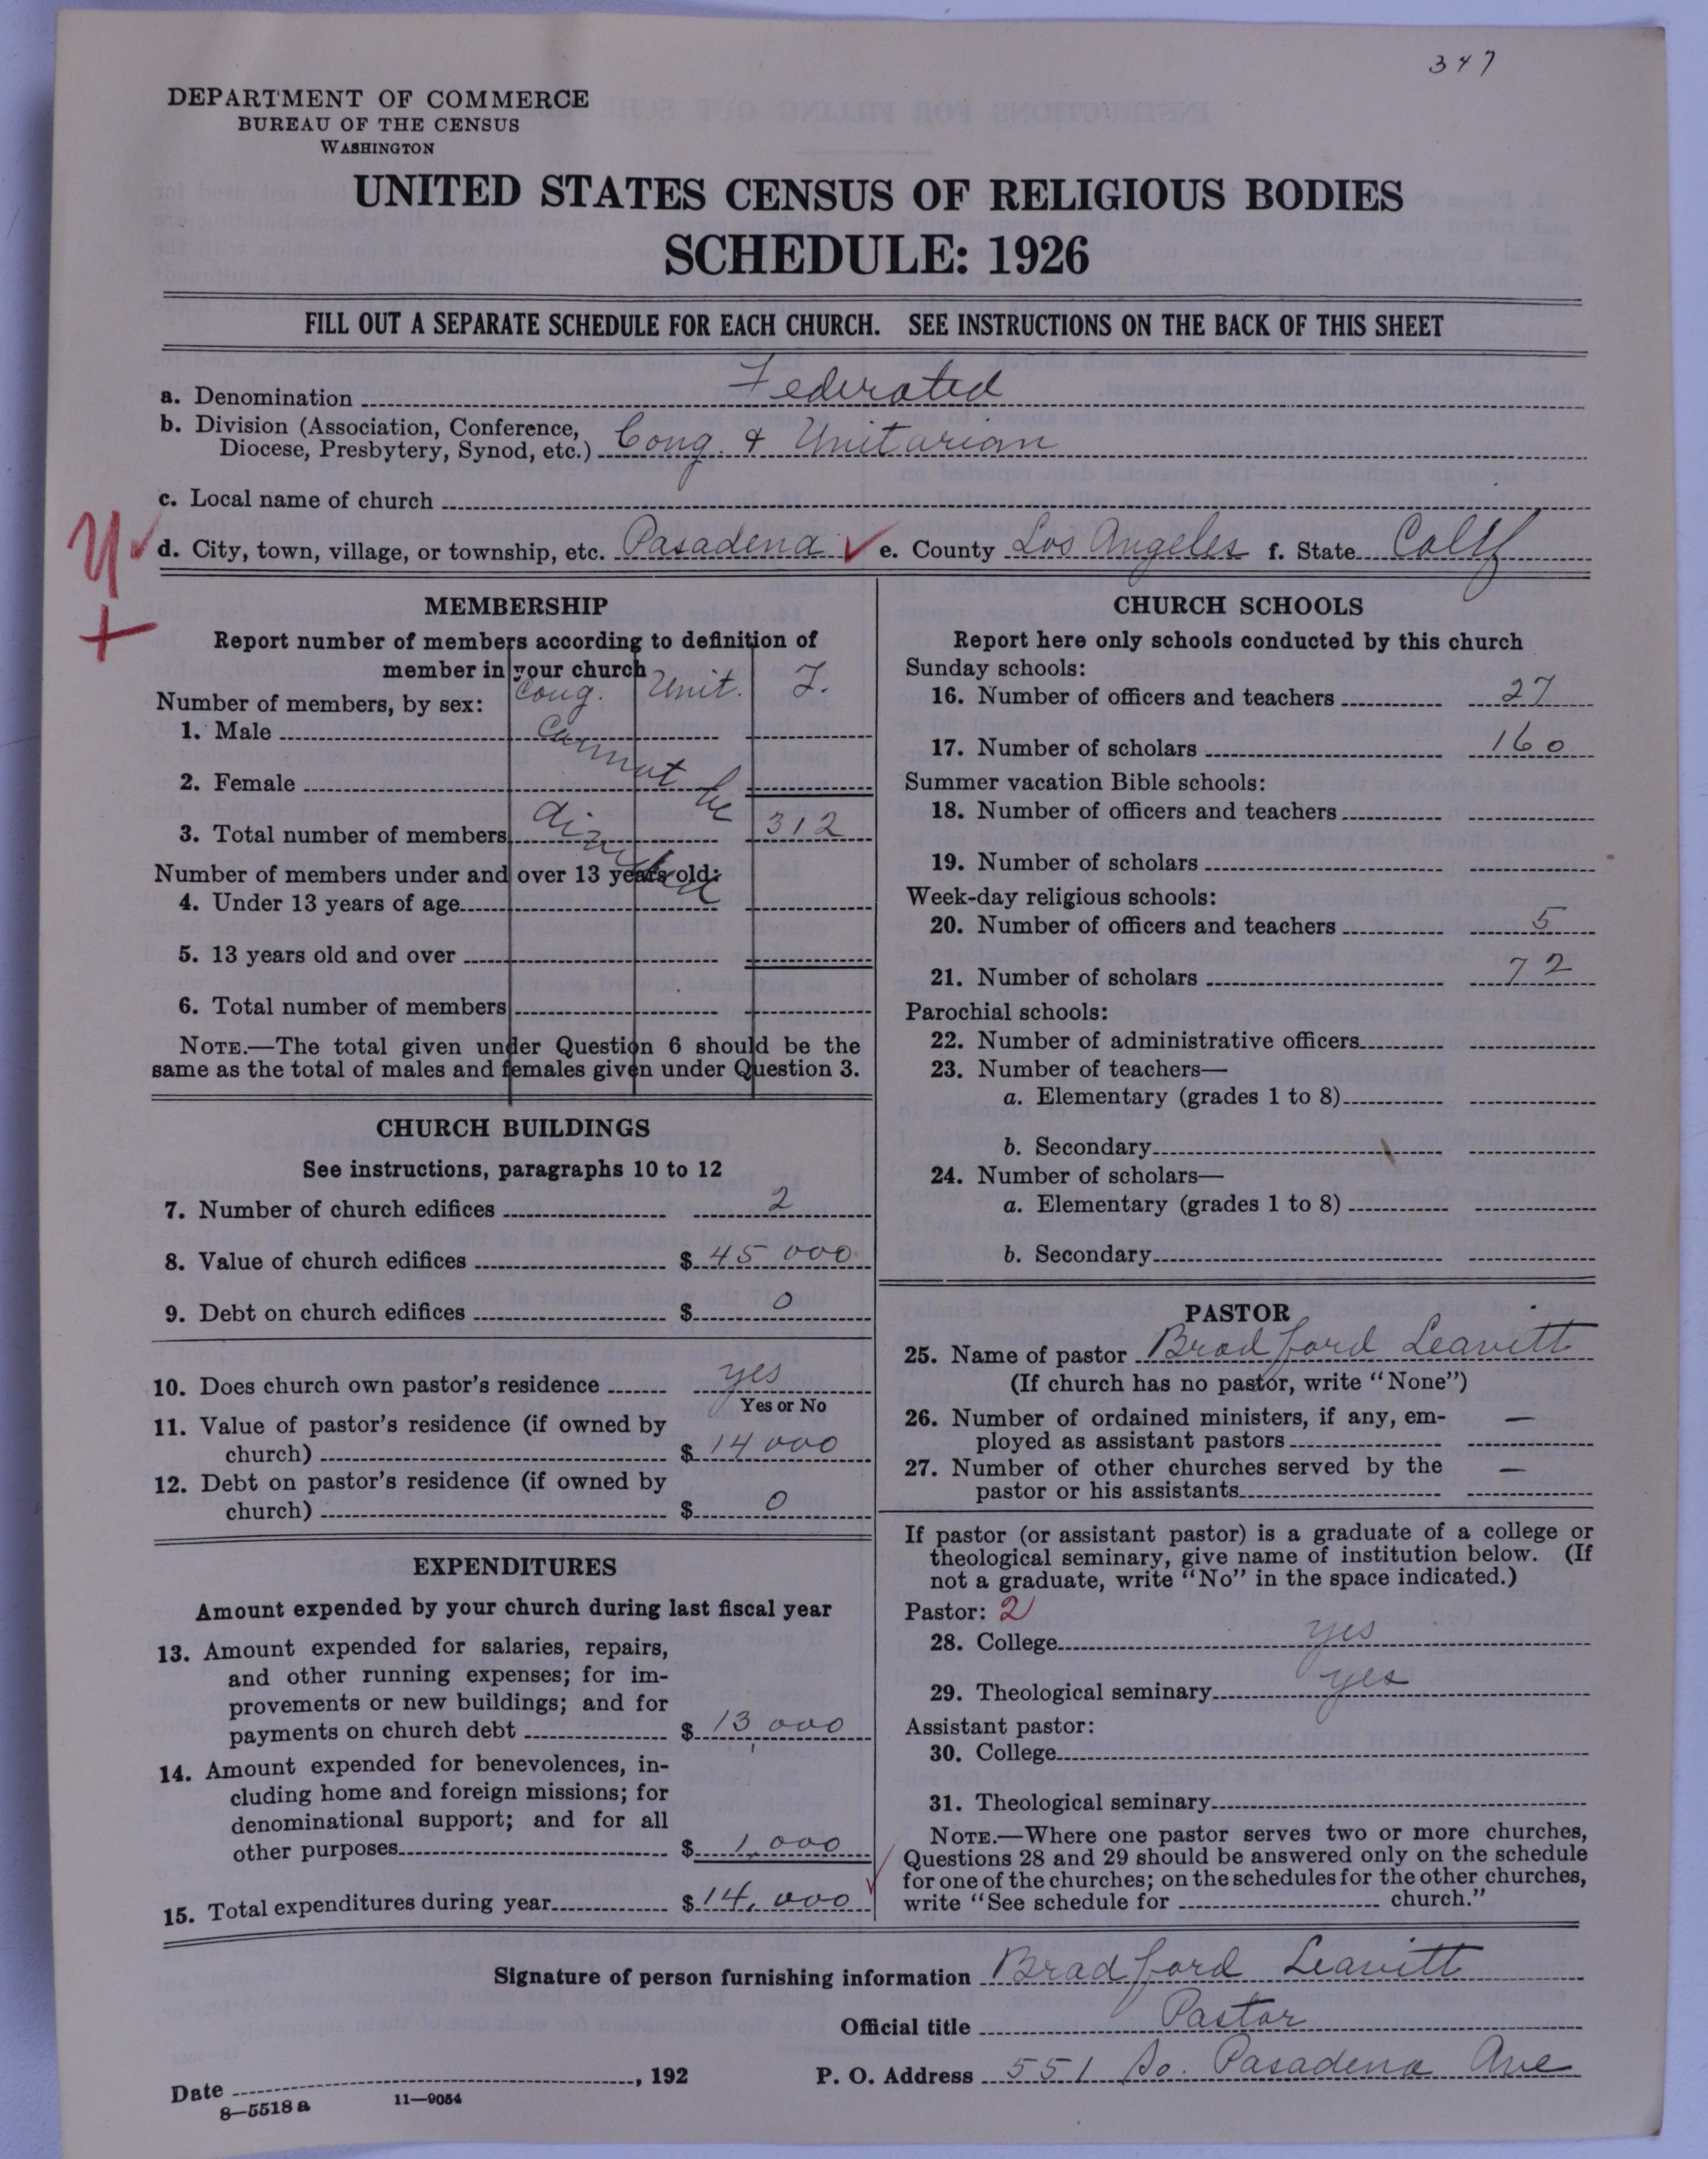 347
DEPARTMENT OF COMMERCE
BUREAU OF THE CENSUS
WASHINGTON
UNITED STATES CENSUS OF RELIGIOUS BODIES
SCHEDULE: 1926
FILL OUT A SEPARATE SCHEDULE FOR EACH CHURCH. SEE INSTRUCTIONS ON THE BACK OF THIS SHEET
a. Denomination Federated
b. Division (Association, Conference,
Diocese, Presbytery, Synod, etc.) Cong. & Unitarian
c. Local name of church
d. City, town, village, or township, etc. Pasadena e. County Los Angeles f. State Calif
MEMBERSHIP
Report number of members according to definition of
member in your church
Cong. Unit. F.
Number of members, by sex:
1. Male Cannot be
2. Female
3. Total number of members divided 312
Number of members under and over 13 years old:
4. Under 13 years of age
5. 13 years old and over
6. Total number of members
NOTE.—The total given under Question 6 should be the
same as the total of males and females given under Question 3.
CHURCH BUILDINGS
See instructions, paragraphs 10 to 12
7. Number of church edifices 2
8. Value of church edifices $ 45 000
9. Debt on church edifices $ 0
10. Does church own pastor's residence yes
Yes or No
11. Value of pastor's residence (if owned by
church) $ 14 000
12. Debt on pastor's residence (if owned by
church) $ 0
EXPENDITURES
Amount expended by your church during last fiscal year
13. Amount expended for salaries, repairs,
and other running expenses; for im-
provements or new buildings; and for
payments on church debt $ 13,000
14. Amount expended for benevolences, in-
cluding home and foreign missions; for
denominational support; and for all
other purposes $ 1,000
15. Total expenditures during year $ 14,000
CHURCH SCHOOLS
Report here only schools conducted by this church
Sunday schools:
16. Number of officers and teachers 27
17. Number of scholars 160
Summer vacation Bible schools:
18. Number of officers and teachers
19. Number of scholars
Week-day religious schools:
20. Number of officers and teachers 5
21. Number of scholars 72
Parochial schools:
22. Number of administrative officers
23. Number of teachers—
a. Elementary (grades 1 to 8)
b. Secondary
24. Number of scholars—
a. Elementary (grades 1 to 8)
b. Secondary
PASTOR
25. Name of pastor Bradford Leavitt
(If church has no pastor, write "None")
26. Number of ordained ministers, if any, em-
ployed as assistant pastors —
27. Number of other churches served by the
pastor or his assistants —
If pastor (or assistant pastor) is a graduate of a college or
theological seminary, give name of institution below. (If
not a graduate, write "No" in the space indicated.)
Pastor: 2
28. College yes
29. Theological seminary yes
Assistant pastor:
30. College
31. Theological seminary
NOTE.—Where one pastor serves two or more churches,
Questions 28 and 29 should be answered only on the schedule
for one of the churches; on the schedules for the other churches,
write "See schedule for church."
Signature of person furnishing information Bradford Leavitt
Official title Pastor
Date , 192 P. O. Address 551 So. Pasadena Ave
8—5518a 11—9054